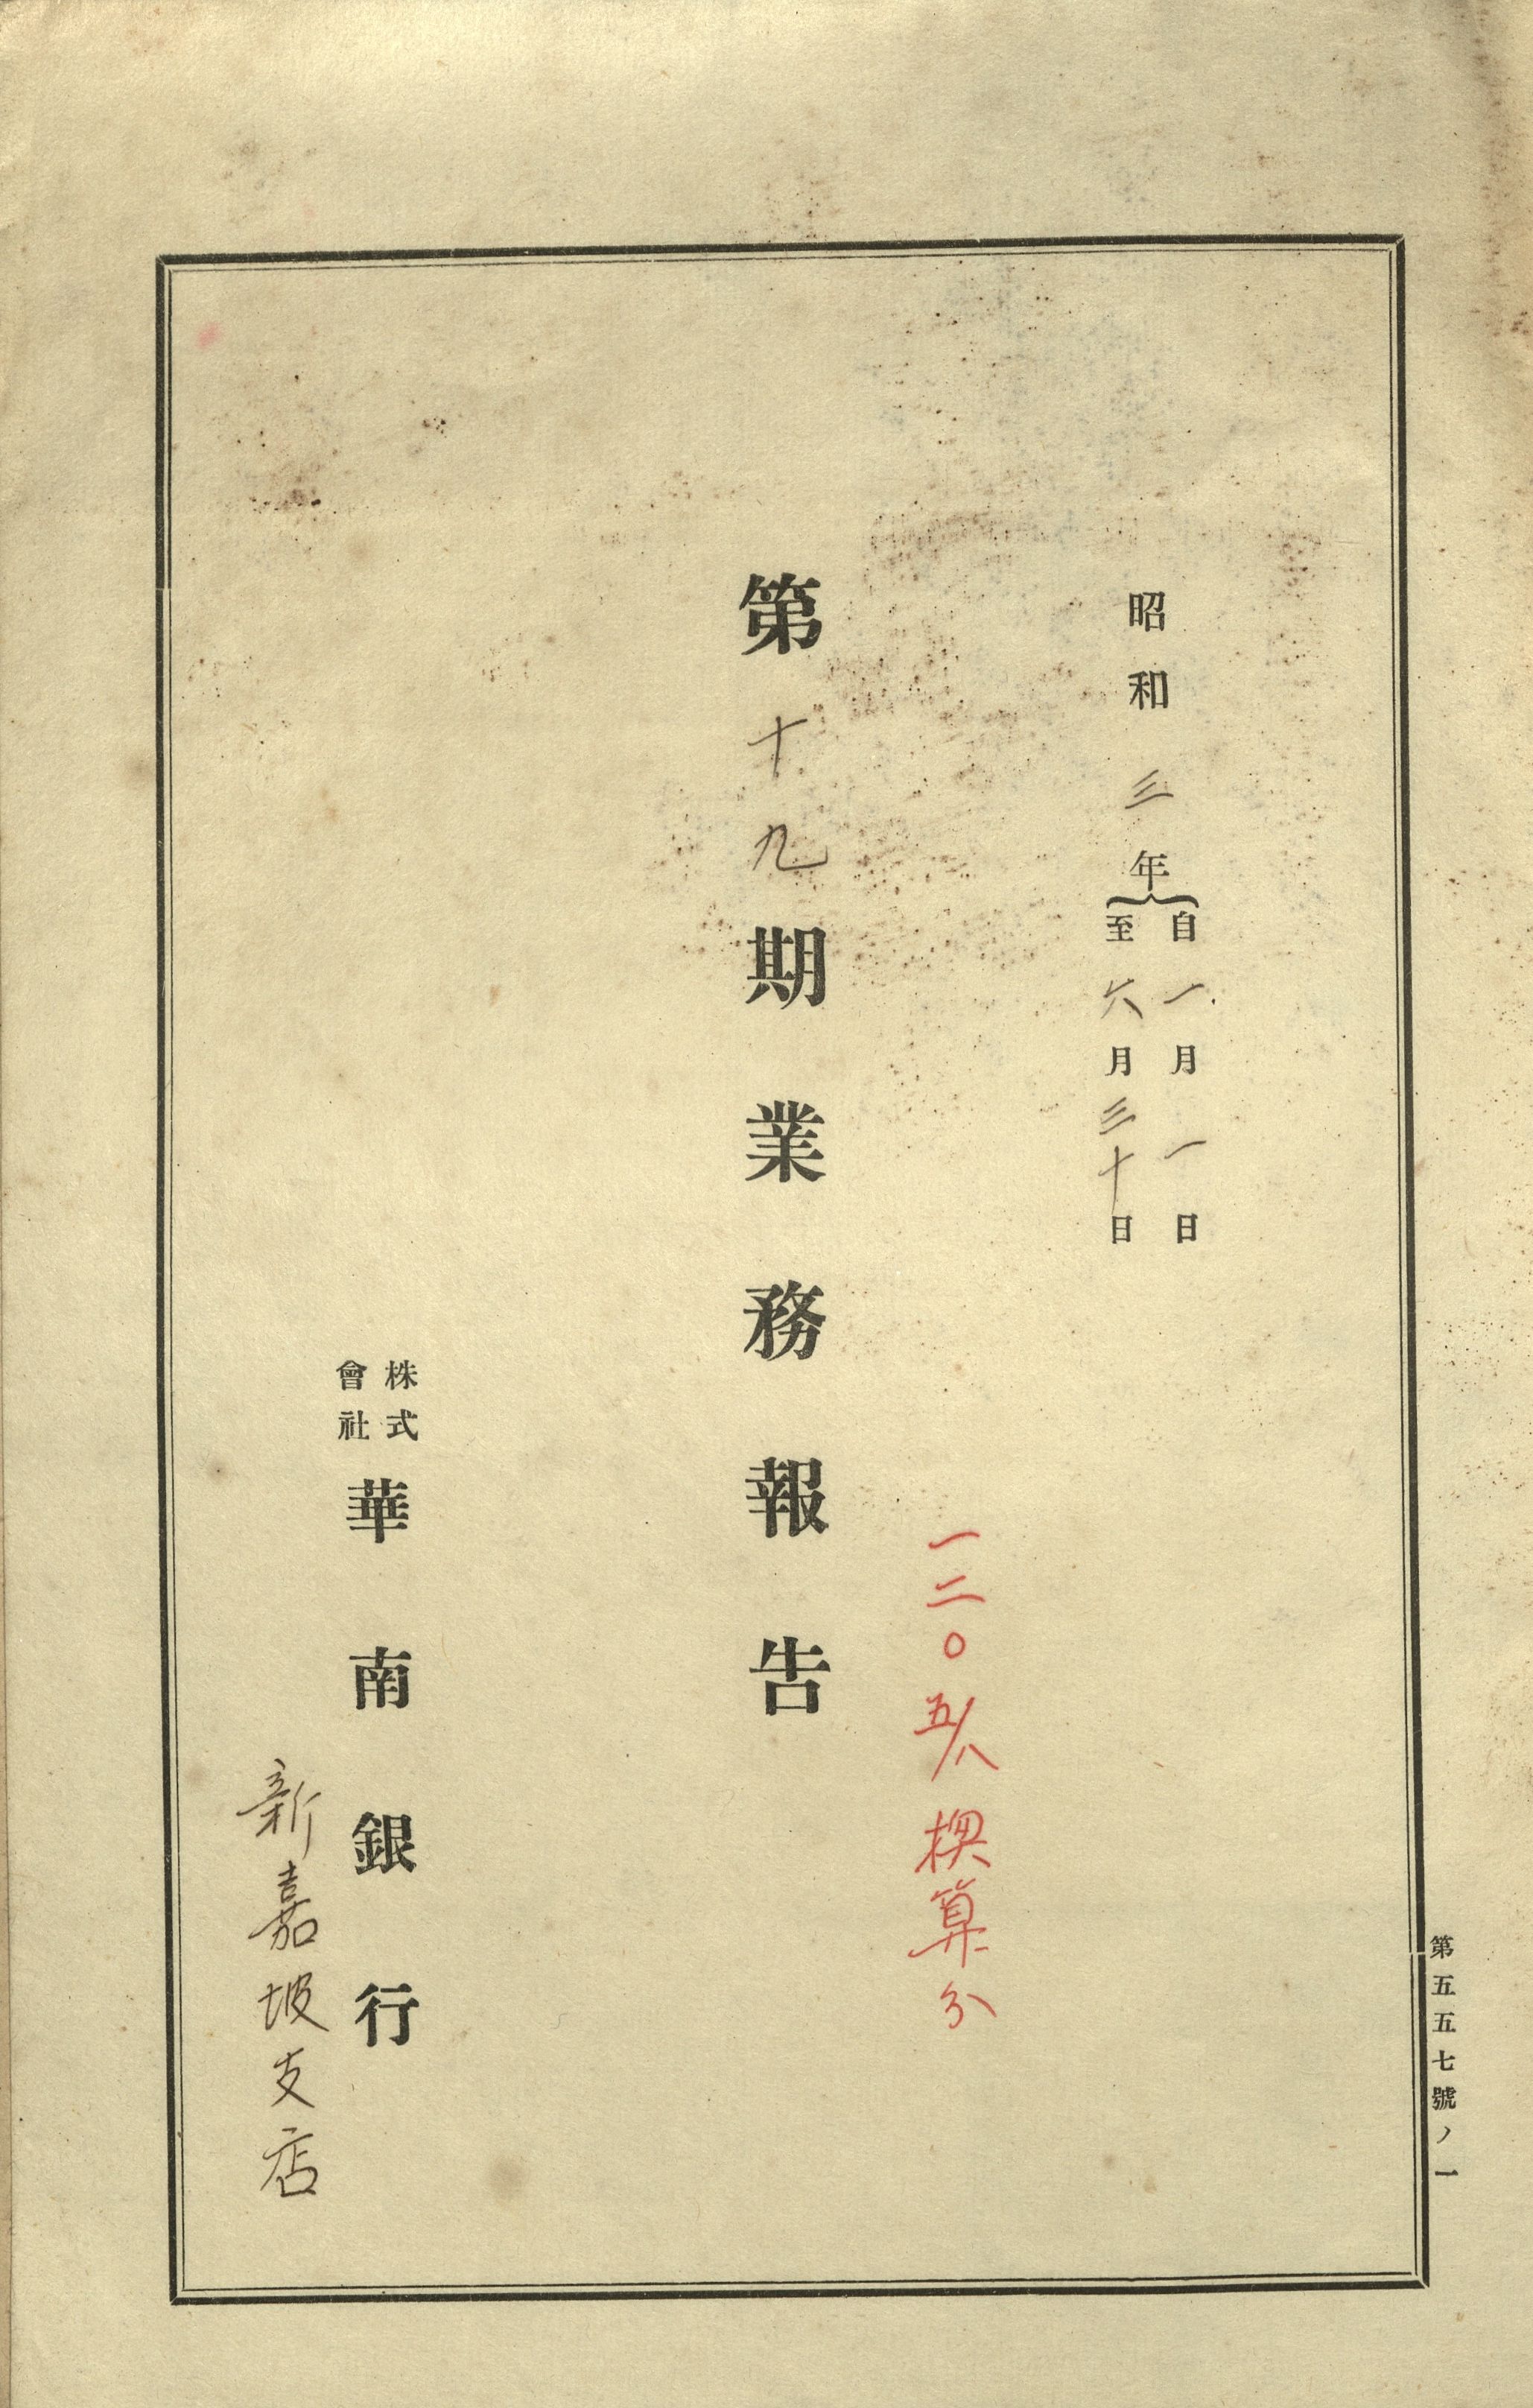 昭和三年
自一月一日
至六月三十日
一二〇五/八換算分
第十九期業務報告
株式
會社
華南銀行
新嘉坡支店
第五五七號ノ一